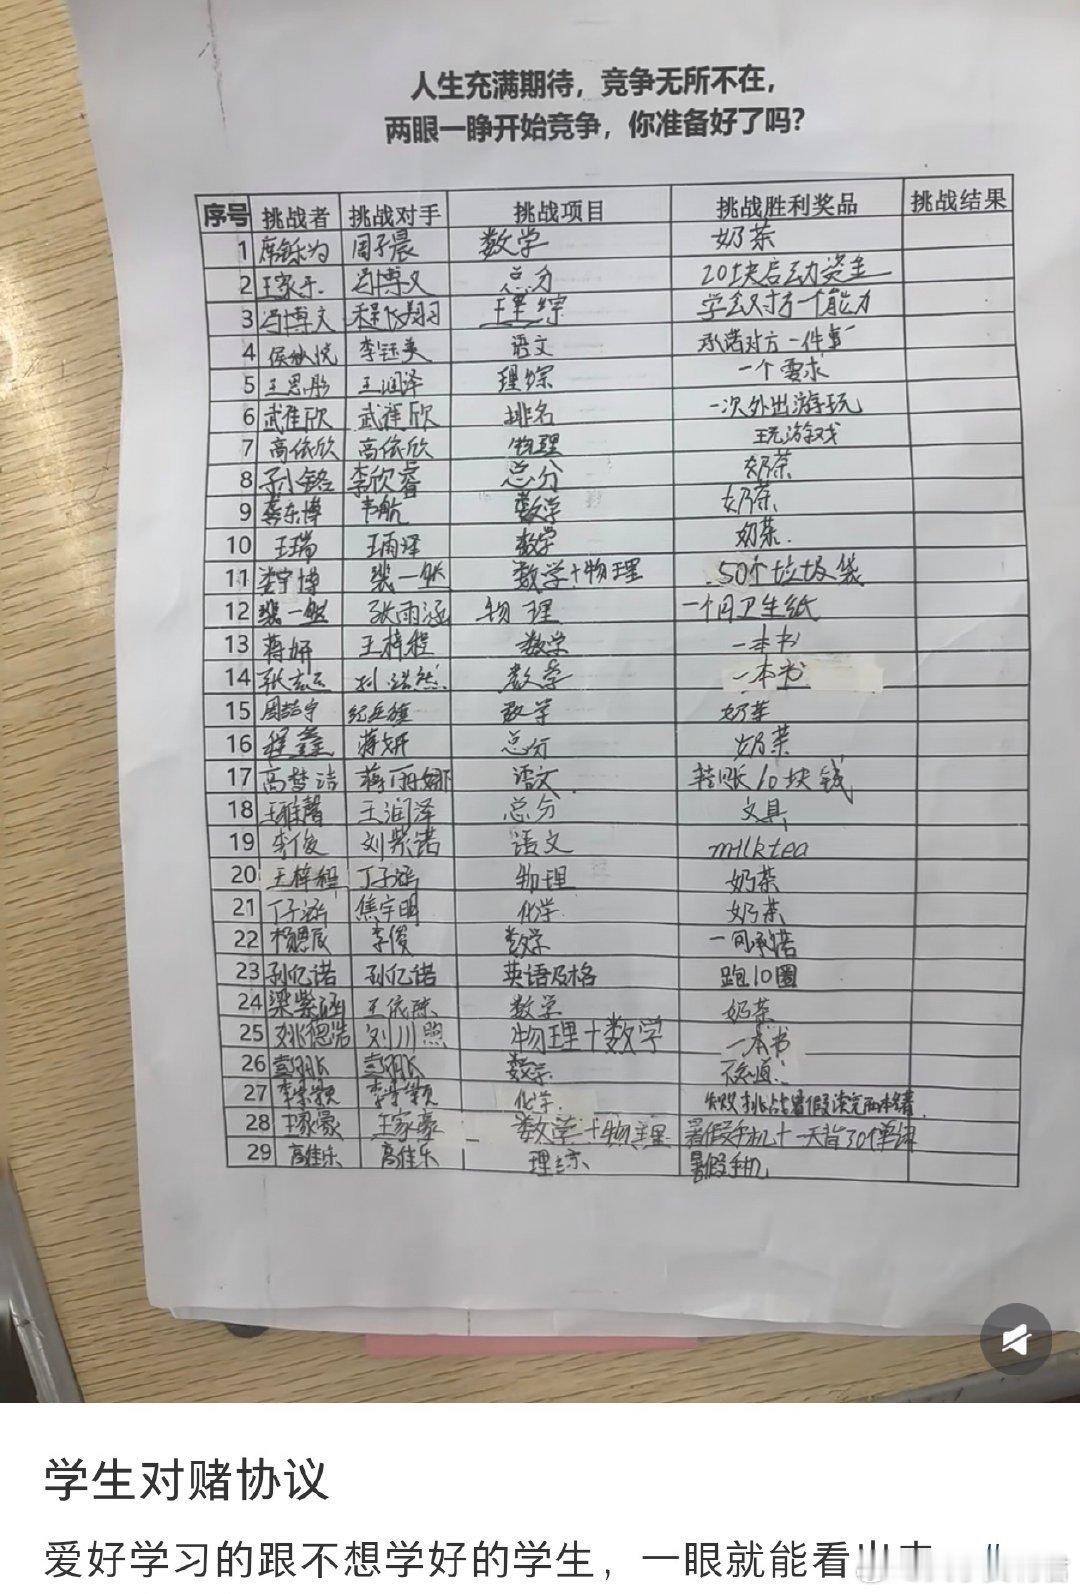 人生充满期待，竞争无所不在，
两眼一睁开始竞争，你准备好了吗？
序号 挑战者 挑战对手 挑战项目 挑战胜利奖品 挑战结果
1 周子晨 数学 奶茶
2 王家 冯博文 总分 20块启动资金
3 冯博文 理综 学会对方一个能力
4 李钰英 语文 承诺对方一件事
5 王思彤 王润泽 理综 一个要求
6 武佳欣 武佳欣 排名 一次外出游玩
7 高依欣 高依欣 物理 玩游戏
8 李欣睿 总分 奶茶
9 龚东博 韦航 数学 奶茶
10 王瑞 王雨泽 数学 奶茶.
11 裴一然 数学+物理 50个垃圾袋
12 裴一然 张雨涵 物理 一个月卫生纸
13 蒋妍 王梓程 数学 一本书
14 孙浩然 数学 一本书
15 数学 奶茶
16 程鑫 蒋妍 总分 奶茶
17 高梦洁 蒋雨娜 语文 转账10块钱
18 王雅馨 王润泽 总分 文具
19 李俊 刘紫诺 语文 milktea
20 王梓程 丁子涵 物理 奶茶
21 丁子涵 焦宇明 化学 奶茶
22 李俊 数学 一个承诺
23 孙亿诺 孙亿诺 英语及格 跑10圈
24 梁紫涵 王依 数学 奶茶
25 姚德浩 刘川煦 物理+数学 一本书
26 数学 不知道
27 化学 失败挑战暑假读完两本书
28 王家豪 王家豪 数学+物理 暑假手机+一天背30个单词
29 高佳乐 高佳乐 理综 暑假手机
学生对赌协议
爱好学习的跟不想学好的学生，一眼就能看出来